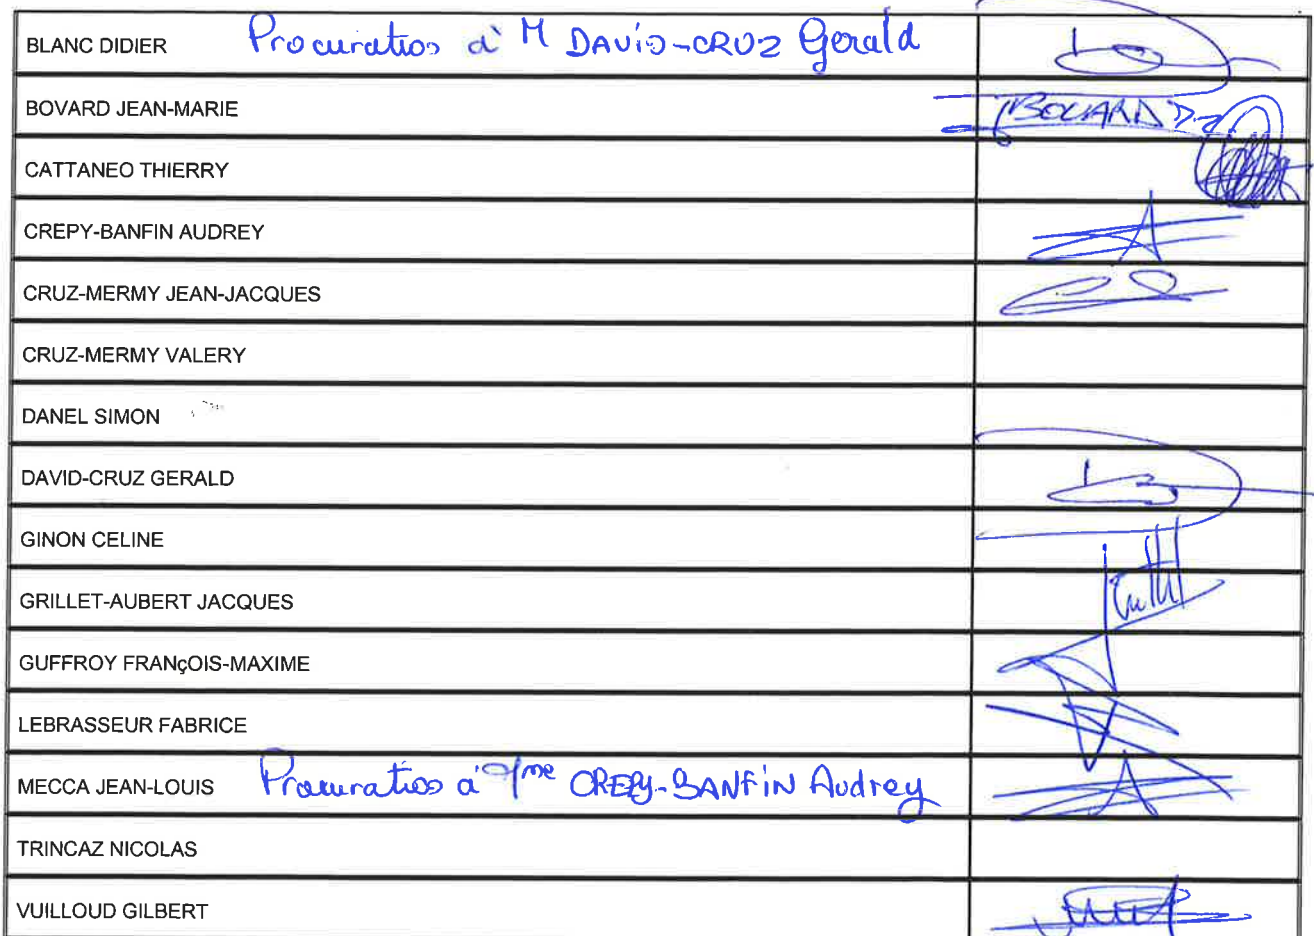 BLANC DIDIER Procuration à M DAVID-CRUZ Gerald
BOVARD JEAN-MARIE BOVARD
CATTANEO THIERRY
CREPY-BANFIN AUDREY
CRUZ-MERMY JEAN-JACQUES
CRUZ-MERMY VALERY
DANEL SIMON
DAVID-CRUZ GERALD
GINON CELINE
GRILLET-AUBERT JACQUES
GUFFROY FRANçOIS-MAXIME
LEBRASSEUR FABRICE
MECCA JEAN-LOUIS Procuration à Mme CREPY-BANFIN Audrey
TRINCAZ NICOLAS
VUILLOUD GILBERT